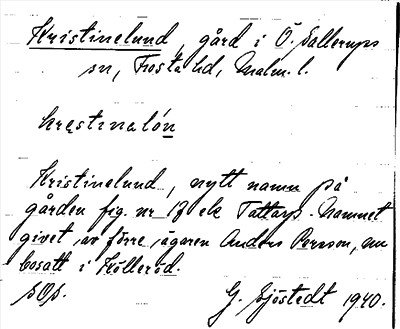 Kristinelund, gård i Ö. Sallerups
sn, Frosta hd, Malm. l.
krestinalón
Kristinelund, nytt namn på
gården fig. nr 17 ek Tattarp. Namnet
givet av förre ägaren Anders Persson, nu
bosatt i Hölleröd.
G. Sjöstedt 1940.